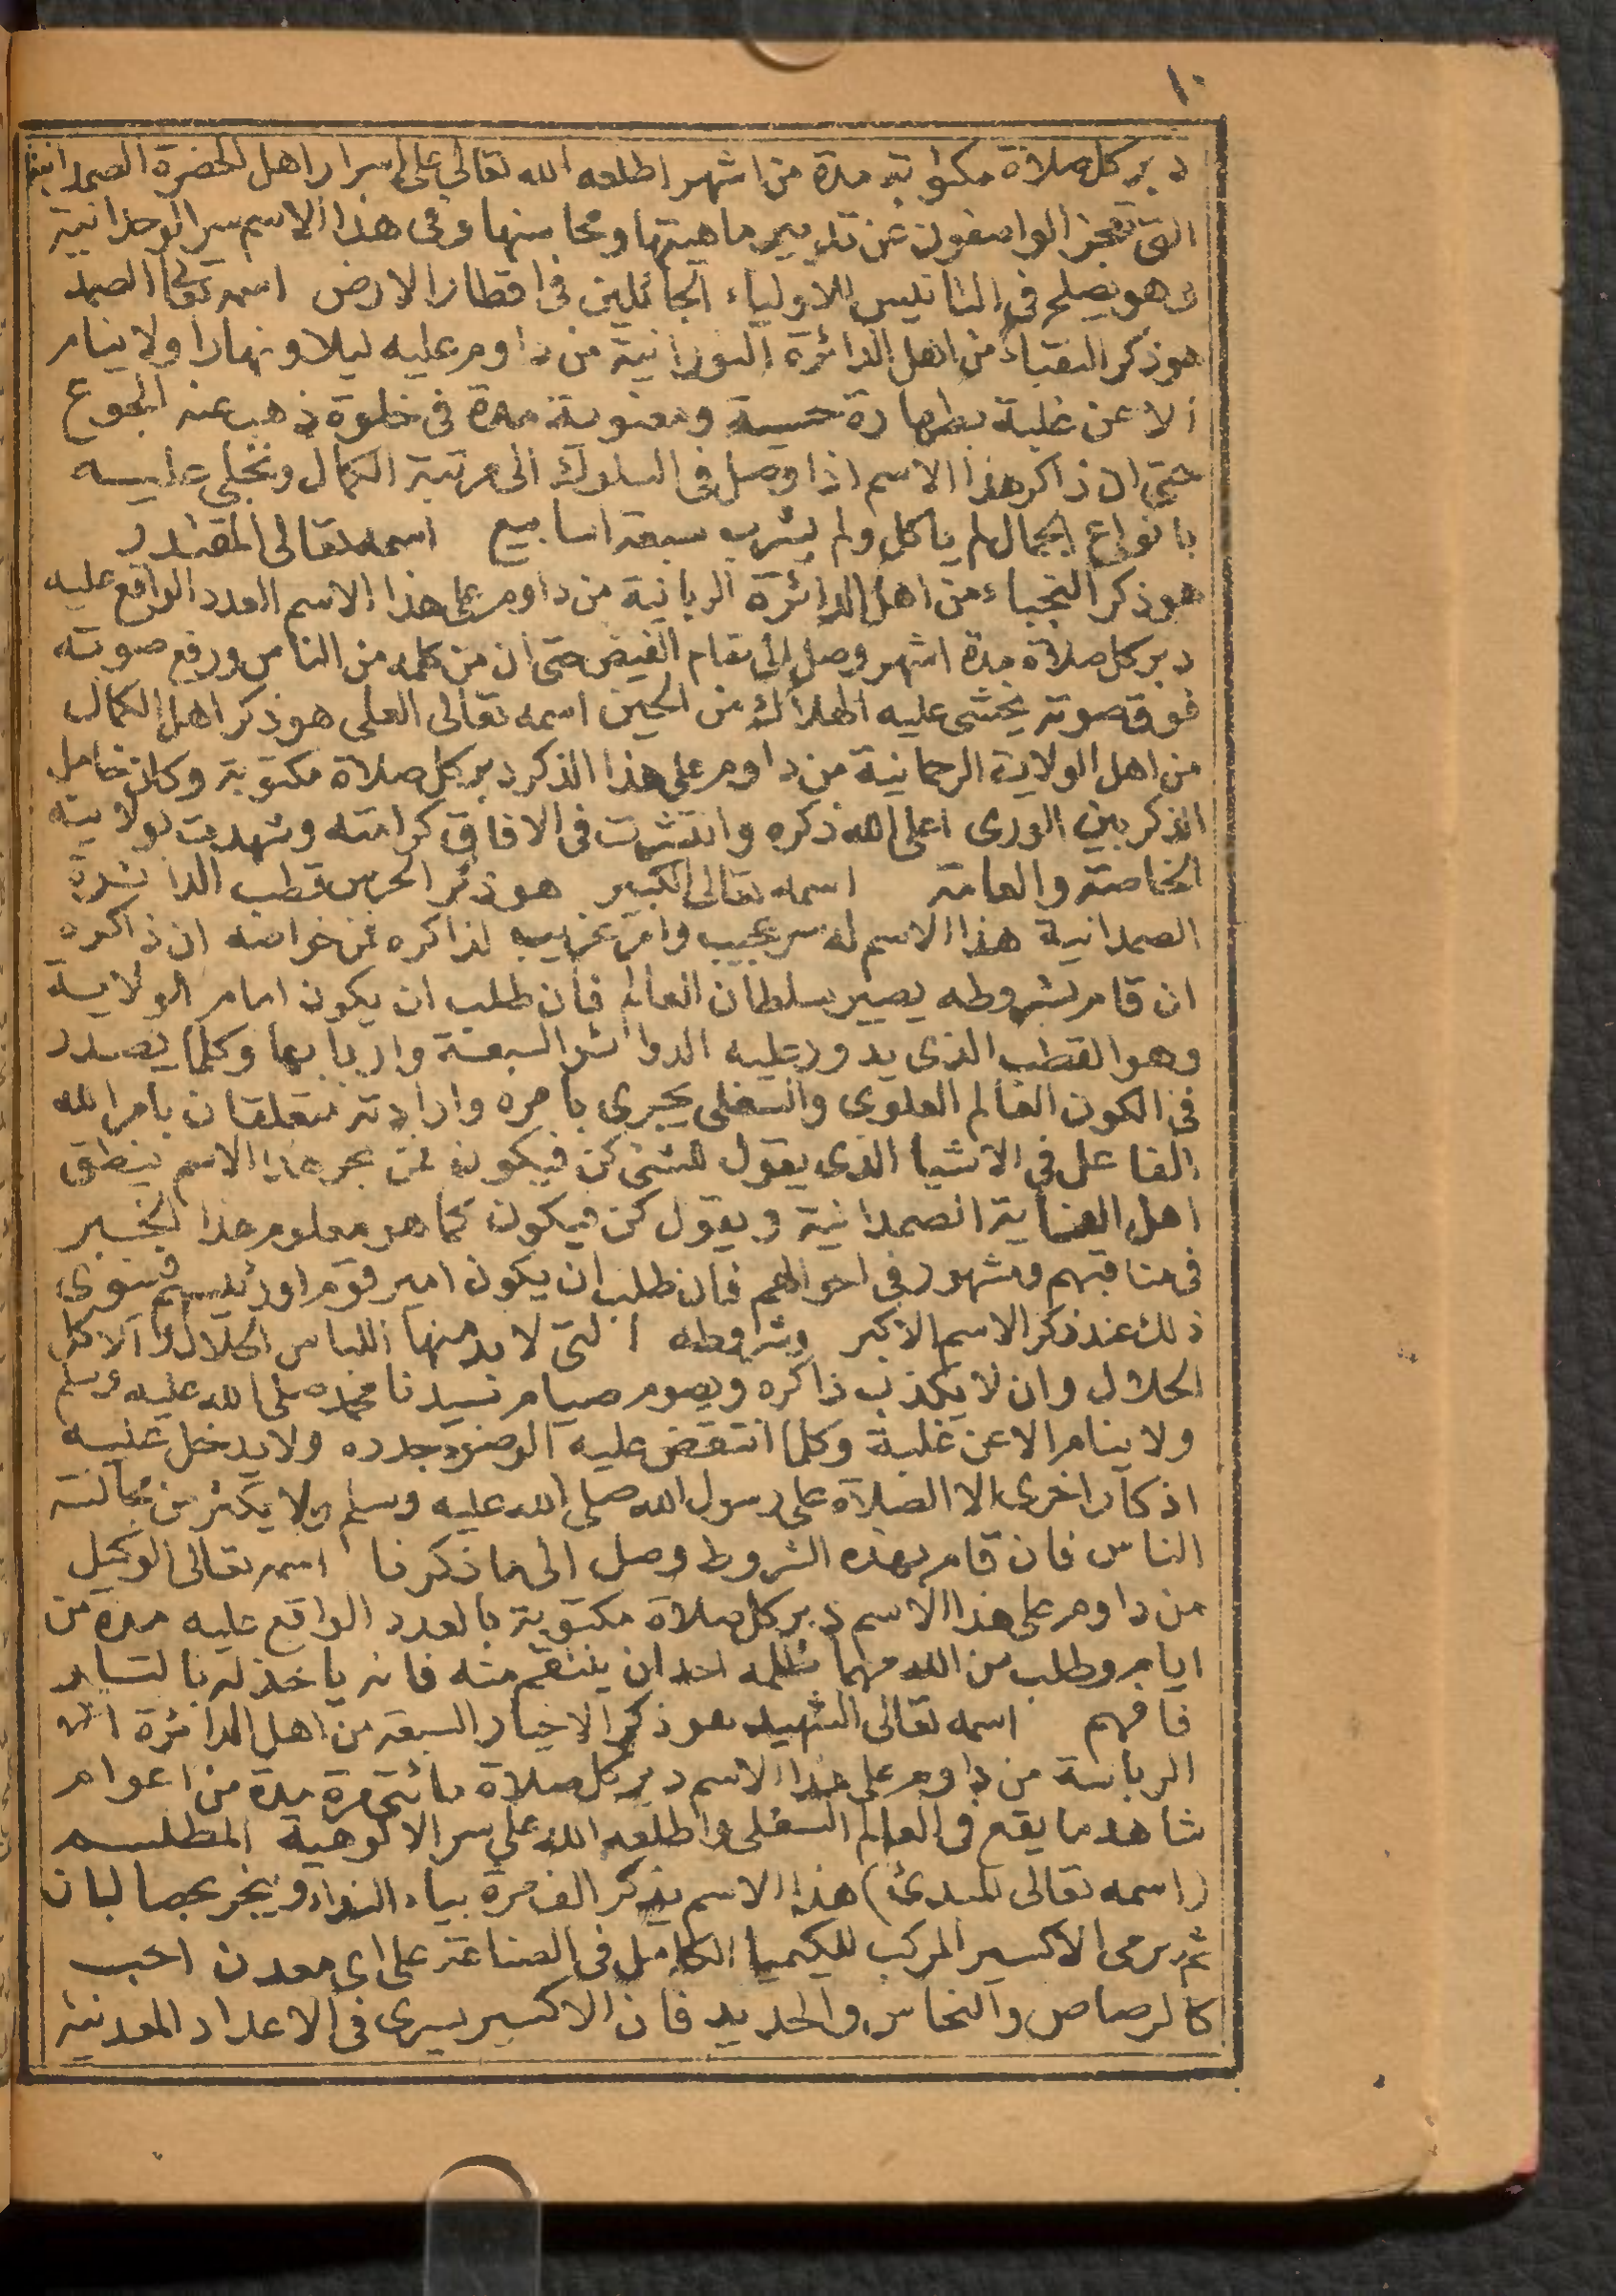 ١٠
دبر كل صلاة مكتوبة مدة من اشهر اطلعه الله تعالى على اسرار اهل الحضرة الصمدانية
التى تعجز الواصفون عن تدبير ماهيتها ومحاسنها وفى هذا الاسم سر الوحدانية
وهو يصلح فى التانيس للاولياء الجائلين فى اقطار الارض اسمه تعالى الصمد
هو ذكر النقباء من اهل الدائرة النورانية من داوم عليه ليلا ونهارا ولا ينام
الا عن غلبة بطهارة حسية ومعنوية مدة فى خلوة ذهب عنه الجوع
حتى ان ذاكر هذا الاسم اذا وصل فى السلوك الى مرتبة الكمال وتجلى عليه
بانواع الجمال لم ياكل ولم يشرب سبعة اسابيع اسمه تعالى المقتدر
هو ذكر النجباء من اهل الدائرة الربانية من داوم على هذا الاسم العدد الواقع عليه
دبر كل صلاة مدة اشهر وصل الى مقام الفيض حتى ان من كلمه من الناس ورفع صوته
فوق صوته يخشى عليه الهلاك من الحين اسمه تعالى العلى هو ذكر اهل الكمال
من اهل الولاية الرحمانية من داوم على هذا الذكر دبر كل صلاة مكتوبة وكان خامل
الذكر بين الورى اعلى الله ذكره وانتشرت فى الافاق كرامته وشهدت بولايته
الخاصة والعامة اسمه تعالى الكبير هو ذكر الحرس قطب الدائرة
الصمدانية هذا الاسم له سر عجيب وامر غريب لذاكره فمن خواصه ان ذاكره
ان قام بشروطه يصير سلطان العالم فان طلب ان يكون امام الولاية
وهو القطب الذى يدور عليه الدوائر السبعة واربابها وكلما يصدر
فى الكون العالم العلوى والسفلى يجرى بامره وارادته متعلقان بامر الله
الفاعل فى الاشيا الذى يقول للشئ كن فيكون فمن بحر هذا الاسم ينطق
اهل العناية الصمدانية ويقول كن فيكون كما هو معلوم هذا الخبر
فى مناقبهم ومشهور فى احوالهم فان طلب ان يكون امير قوم او رئيسهم فينوى
ذلك عند ذكر الاسم الاكبر وشروطه التى لابد منها اللباس الحلال والاكل
الحلال وان لا يكذب ذاكره ويصوم صيام سيدنا محمد صلى الله عليه وسلم
ولا ينام الا عن غلبة وكلما انتقض عليه الوضوء جدده ولا يدخل عليه
اذكارا اخرى الا الصلاة على رسول الله صلى الله عليه وسلم ولا يكثر من مجالسة
الناس فان قام بهذه الشروط وصل الى ما ذكرنا اسمه تعالى الوكيل
من داوم على هذا الاسم دبر كل صلاة مكتوبة بالعدد الواقع عليه مدة من
ايام وطلب من الله مهما ظلمه احد ان ينتقم منه فانه ياخذ له
فافهم اسمه تعالى الشهيد هو ذكر الاخيار السبعة من اهل الدائرة
الربانية من داوم على هذا الاسم دبر كل صلاة مائتى مرة مدة من اعوام
شاهد ما يقع فى العالم السفلى واطلعه الله على سر الالوهية المطلسم
(اسمه تعالى المبدئ) هذا الاسم يذكر الف مرة بياء النداء ويبخر بحصا لبان
ثم يرمى الاكسير المركب للكيميا الكامل فى الصناعة على اى معدن احب
كالرصاص والنحاس والحديد فان الاكسير يسرى فى الاعداد المعدنية